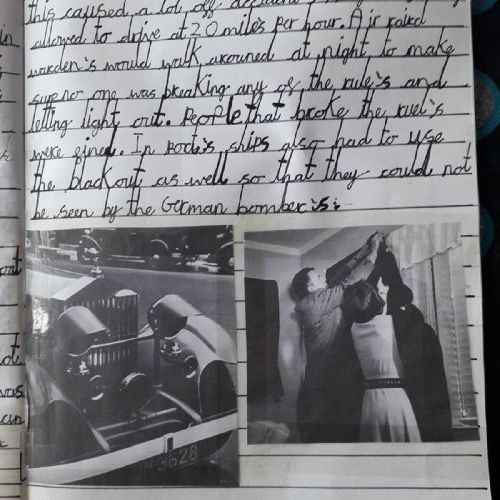 this caused a lot off accident
allowed to drive at 20 miles per hour. Air raid
warden's would walk arouned at night to make
sure no one was breaking any of the rule's and
letting light out. People that broke the ruel's
were fined. In port's ships also had to use
the blackout as well so that they could not
be seen by the German bomber's.
in
s
port
ot
was
an
3628